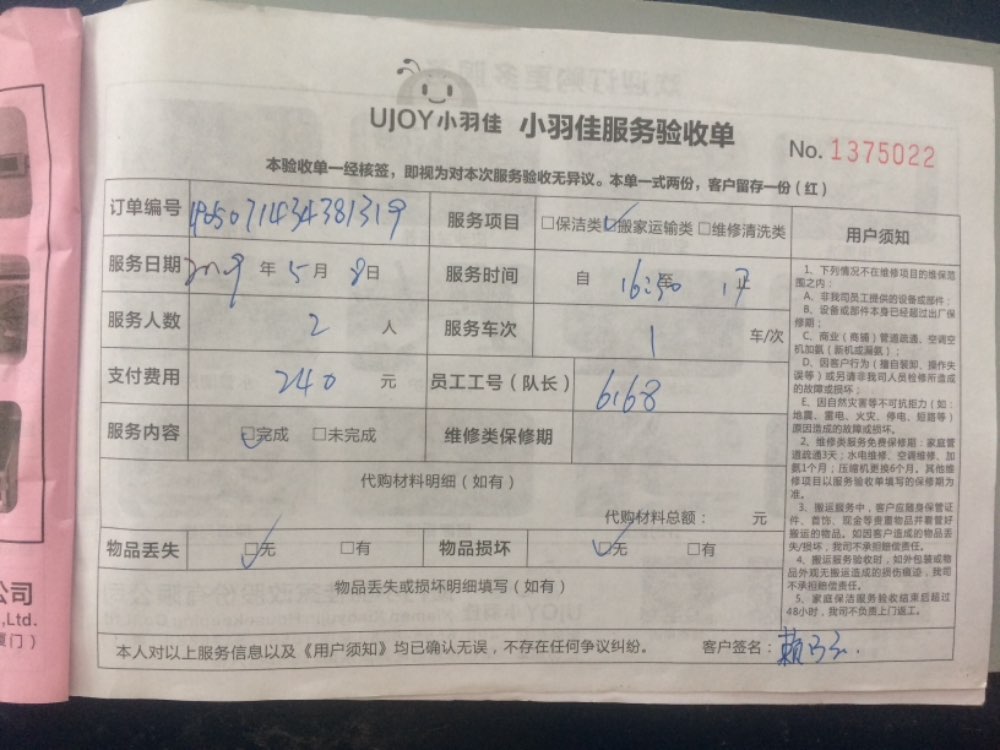 UJOY小羽佳 小羽佳服务验收单
No. 1375022
本验收单一经核签，即视为对本次服务验收无异议。本单一式两份，客户留存一份（红）
订单编号 465071434381319 服务项目 □保洁类 ☑搬家运输类 □维修清洗类
服务日期 2019年5月8日 服务时间 自 16:30 至 17 止
服务人数 2 人 服务车次 1 车/次
支付费用 240 元 员工工号（队长） 6168
服务内容 ☑完成 □未完成 维修类保修期
代购材料明细（如有）
代购材料总额： 元
物品丢失 ☑无 □有 物品损坏 ☑无 □有
物品丢失或损坏明细填写（如有）
本人对以上服务信息以及《用户须知》均已确认无误，不存在任何争议纠纷。 客户签名：赖
用户须知
1、下列情况不在维修项目的维保范
围之内：
A、非我司员工提供的设备或部件；
B、设备或部件本身已经超过出厂保
修期；
C、商业（商铺）管道疏通、空调空
机加氨（新机或漏氨）；
D、因客户行为（擅自装卸、操作失
误等）或另请非我司人员检修所造成
的故障或损坏；
E、因自然灾害等不可抗拒力（如：
地震、雷电、火灾、停电、短路等）
原因造成的故障或损坏。
2、维修类服务免费保修期：家庭管
道疏通3天；水电维修、空调维修、加
氨1个月；压缩机更换6个月。其他维
修项目以服务验收单填写的保修期为
准。
3、搬运服务中，客户应随身保管证
件、首饰、现金等贵重物品并看管好
搬运的物品。如因客户造成的物品丢
失/损坏，我司不承担赔偿责任。
4、搬运服务验收时，如外包装或物
品外观无搬运造成的损伤痕迹，我司
不承担赔偿责任。
5、家庭保洁服务验收结束后超过
48小时，我司不负责上门返工。
公司
,Ltd.
厦门）